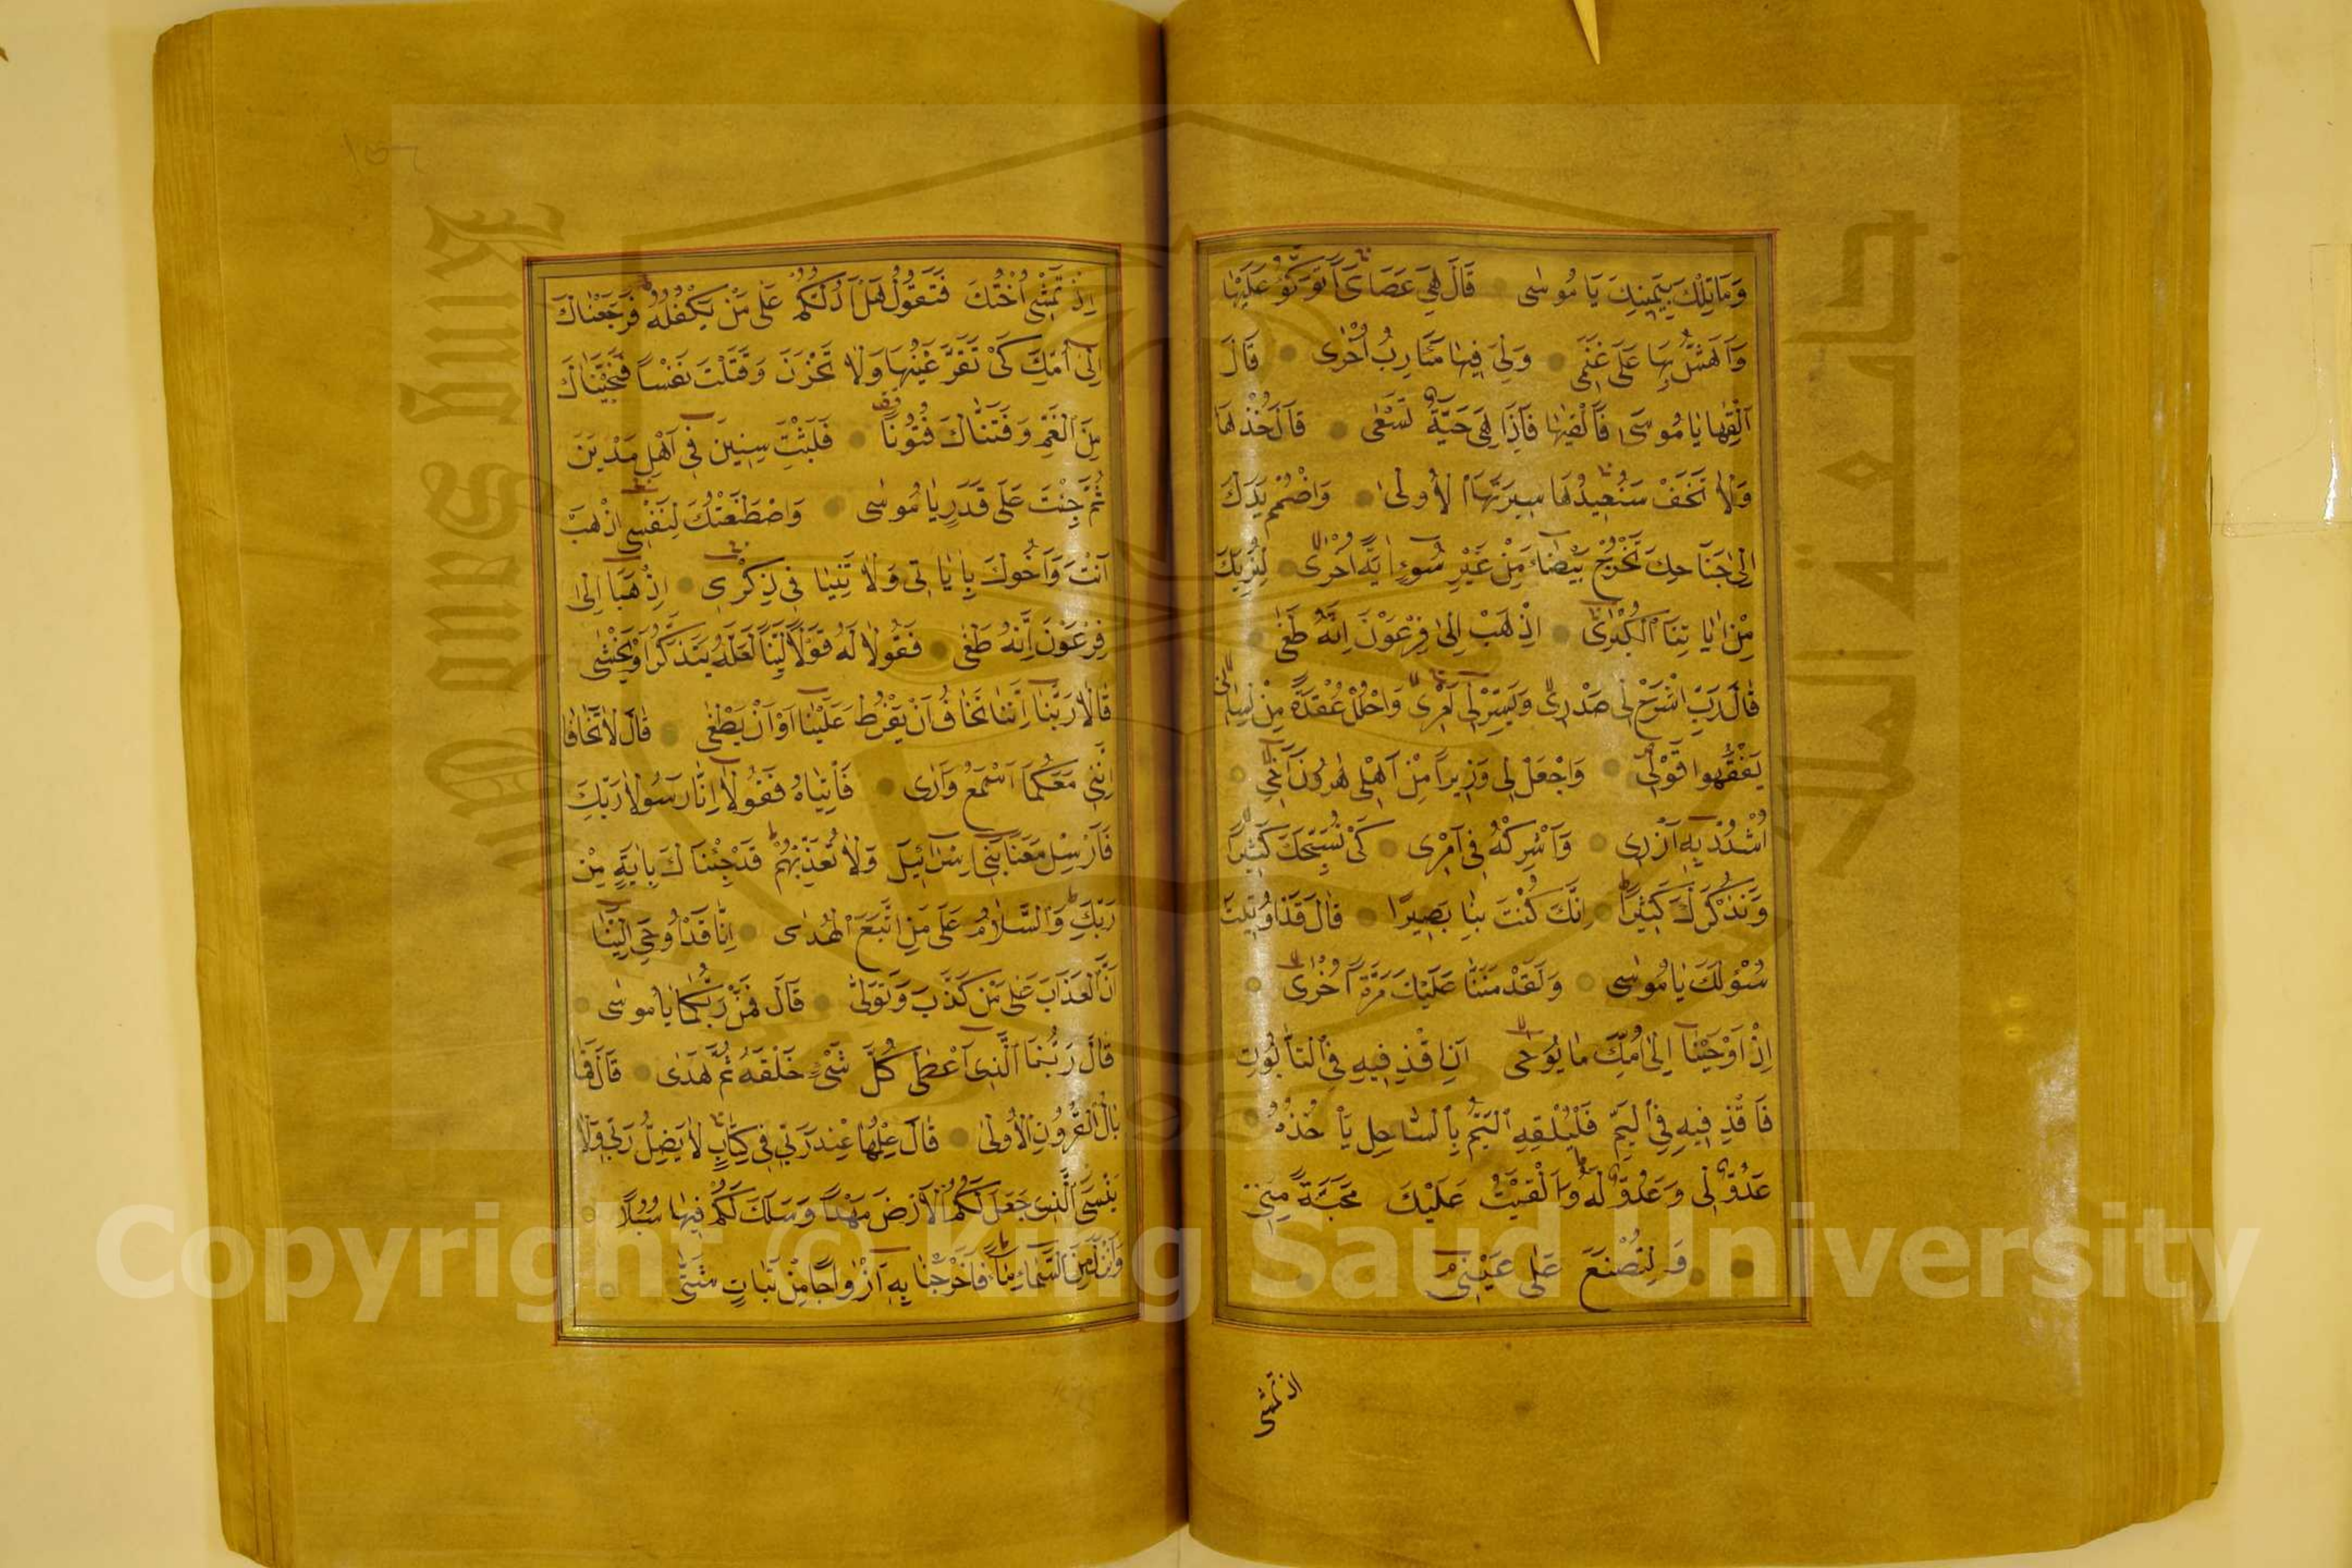 وَمَا تِلْكَ بِيَمِينِكَ يَا مُوسٰى قَالَ هِيَ عَصَايَ أَتَوَكَّؤُ عَلَيْهَا
وَأَهُشُّ بِهَا عَلَى غَنَمِي وَلِيَ فِيهَا مَآرِبُ أُخْرٰى قَالَ
أَلْقِهَا يَا مُوسَى فَأَلْقٰيهَا فَإِذَا هِيَ حَيَّةٌ تَسْعٰى قَالَ خُذْهَا
وَلَا تَخَفْ سَنُعِيدُهَا سِيرَتَهَا الْأُولٰى وَاضْمُمْ يَدَكَ
إِلٰى جَنَاحِكَ تَخْرُجْ بَيْضَاءَ مِنْ غَيْرِ سُوءٍ اٰيَةً أُخْرٰى لِنُرِيَكَ
مِنْ اٰيَاتِنَا الْكُبْرٰى اِذْهَبْ إِلٰى فِرْعَوْنَ إِنَّهُ طَغٰى
قَالَ رَبِّ اشْرَحْ لِي صَدْرِي وَيَسِّرْ لِي أَمْرِي وَاحْلُلْ عُقْدَةً مِنْ لِسَانِي
يَفْقَهُوا قَوْلِي وَاجْعَلْ لِي وَزِيرًا مِنْ أَهْلِي هٰرُونَ أَخِي
اُشْدُدْ بِهِ أَزْرِي وَأَشْرِكْهُ فِي أَمْرِي كَيْ نُسَبِّحَكَ كَثِيرًا
وَنَذْكُرَكَ كَثِيرًا إِنَّكَ كُنْتَ بِنَا بَصِيرًا قَالَ قَدْ أُوتِيتَ
سُؤْلَكَ يَا مُوسٰى وَلَقَدْ مَنَنَّا عَلَيْكَ مَرَّةً أُخْرٰى
إِذْ أَوْحَيْنَا إِلٰى أُمِّكَ مَا يُوحٰى أَنِ اقْذِفِيهِ فِي التَّابُوتِ
فَاقْذِفِيهِ فِي الْيَمِّ فَلْيُلْقِهِ الْيَمُّ بِالسَّاحِلِ يَأْخُذْهُ
عَدُوٌّ لِي وَعَدُوٌّ لَهُ وَأَلْقَيْتُ عَلَيْكَ مَحَبَّةً مِنِّي
وَلِتُصْنَعَ عَلٰى عَيْنِي
اذ تمشى
إِذْ تَمْشِي أُخْتُكَ فَتَقُولُ هَلْ أَدُلُّكُمْ عَلٰى مَنْ يَكْفُلُهُ فَرَجَعْنَاكَ
إِلٰى أُمِّكَ كَيْ تَقَرَّ عَيْنُهَا وَلَا تَحْزَنَ وَقَتَلْتَ نَفْسًا فَنَجَّيْنَاكَ
مِنَ الْغَمِّ وَفَتَنَّاكَ فُتُونًا فَلَبِثْتَ سِنِينَ فِي أَهْلِ مَدْيَنَ
ثُمَّ جِئْتَ عَلَى قَدَرٍ يَا مُوسٰى وَاصْطَنَعْتُكَ لِنَفْسِي اِذْهَبْ
أَنْتَ وَأَخُوكَ بِاٰيَاتِي وَلَا تَنِيَا فِي ذِكْرِي اِذْهَبَا إِلٰى
فِرْعَوْنَ إِنَّهُ طَغٰى فَقُولَا لَهُ قَوْلًا لَيِّنًا لَعَلَّهُ يَتَذَكَّرُ أَوْ يَخْشٰى
قَالَا رَبَّنَا إِنَّنَا نَخَافُ أَنْ يَفْرُطَ عَلَيْنَا أَوْ أَنْ يَطْغٰى قَالَ لَا تَخَافَا
إِنَّنِي مَعَكُمَا أَسْمَعُ وَأَرٰى فَأْتِيَاهُ فَقُولَا إِنَّا رَسُولَا رَبِّكَ
فَأَرْسِلْ مَعَنَا بَنِي إِسْرَائِيلَ وَلَا تُعَذِّبْهُمْ قَدْ جِئْنَاكَ بِاٰيَةٍ مِنْ
رَبِّكَ وَالسَّلَامُ عَلَى مَنِ اتَّبَعَ الْهُدٰى إِنَّا قَدْ أُوحِيَ إِلَيْنَا
أَنَّ الْعَذَابَ عَلٰى مَنْ كَذَّبَ وَتَوَلّٰى قَالَ فَمَنْ رَبُّكُمَا يَا مُوسٰى
قَالَ رَبُّنَا الَّذِي أَعْطٰى كُلَّ شَيْءٍ خَلْقَهُ ثُمَّ هَدٰى قَالَ فَمَا
بَالُ الْقُرُونِ الْأُولٰى قَالَ عِلْمُهَا عِنْدَ رَبِّي فِي كِتَابٍ لَا يَضِلُّ رَبِّي وَلَا
يَنْسَى الَّذِي جَعَلَ لَكُمُ الْأَرْضَ مَهْدًا وَسَلَكَ لَكُمْ فِيهَا سُبُلًا
وَأَنْزَلَ مِنَ السَّمَاءِ مَاءً فَأَخْرَجْنَا بِهِ أَزْوَاجًا مِنْ نَبَاتٍ شَتّٰى
جامعة الملك سعود
King Saud University
1957
Copyright © King Saud University